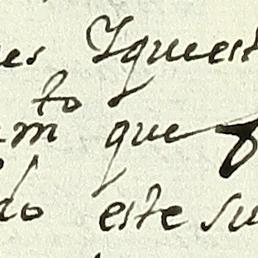 es Yquest
to
m que
do este su